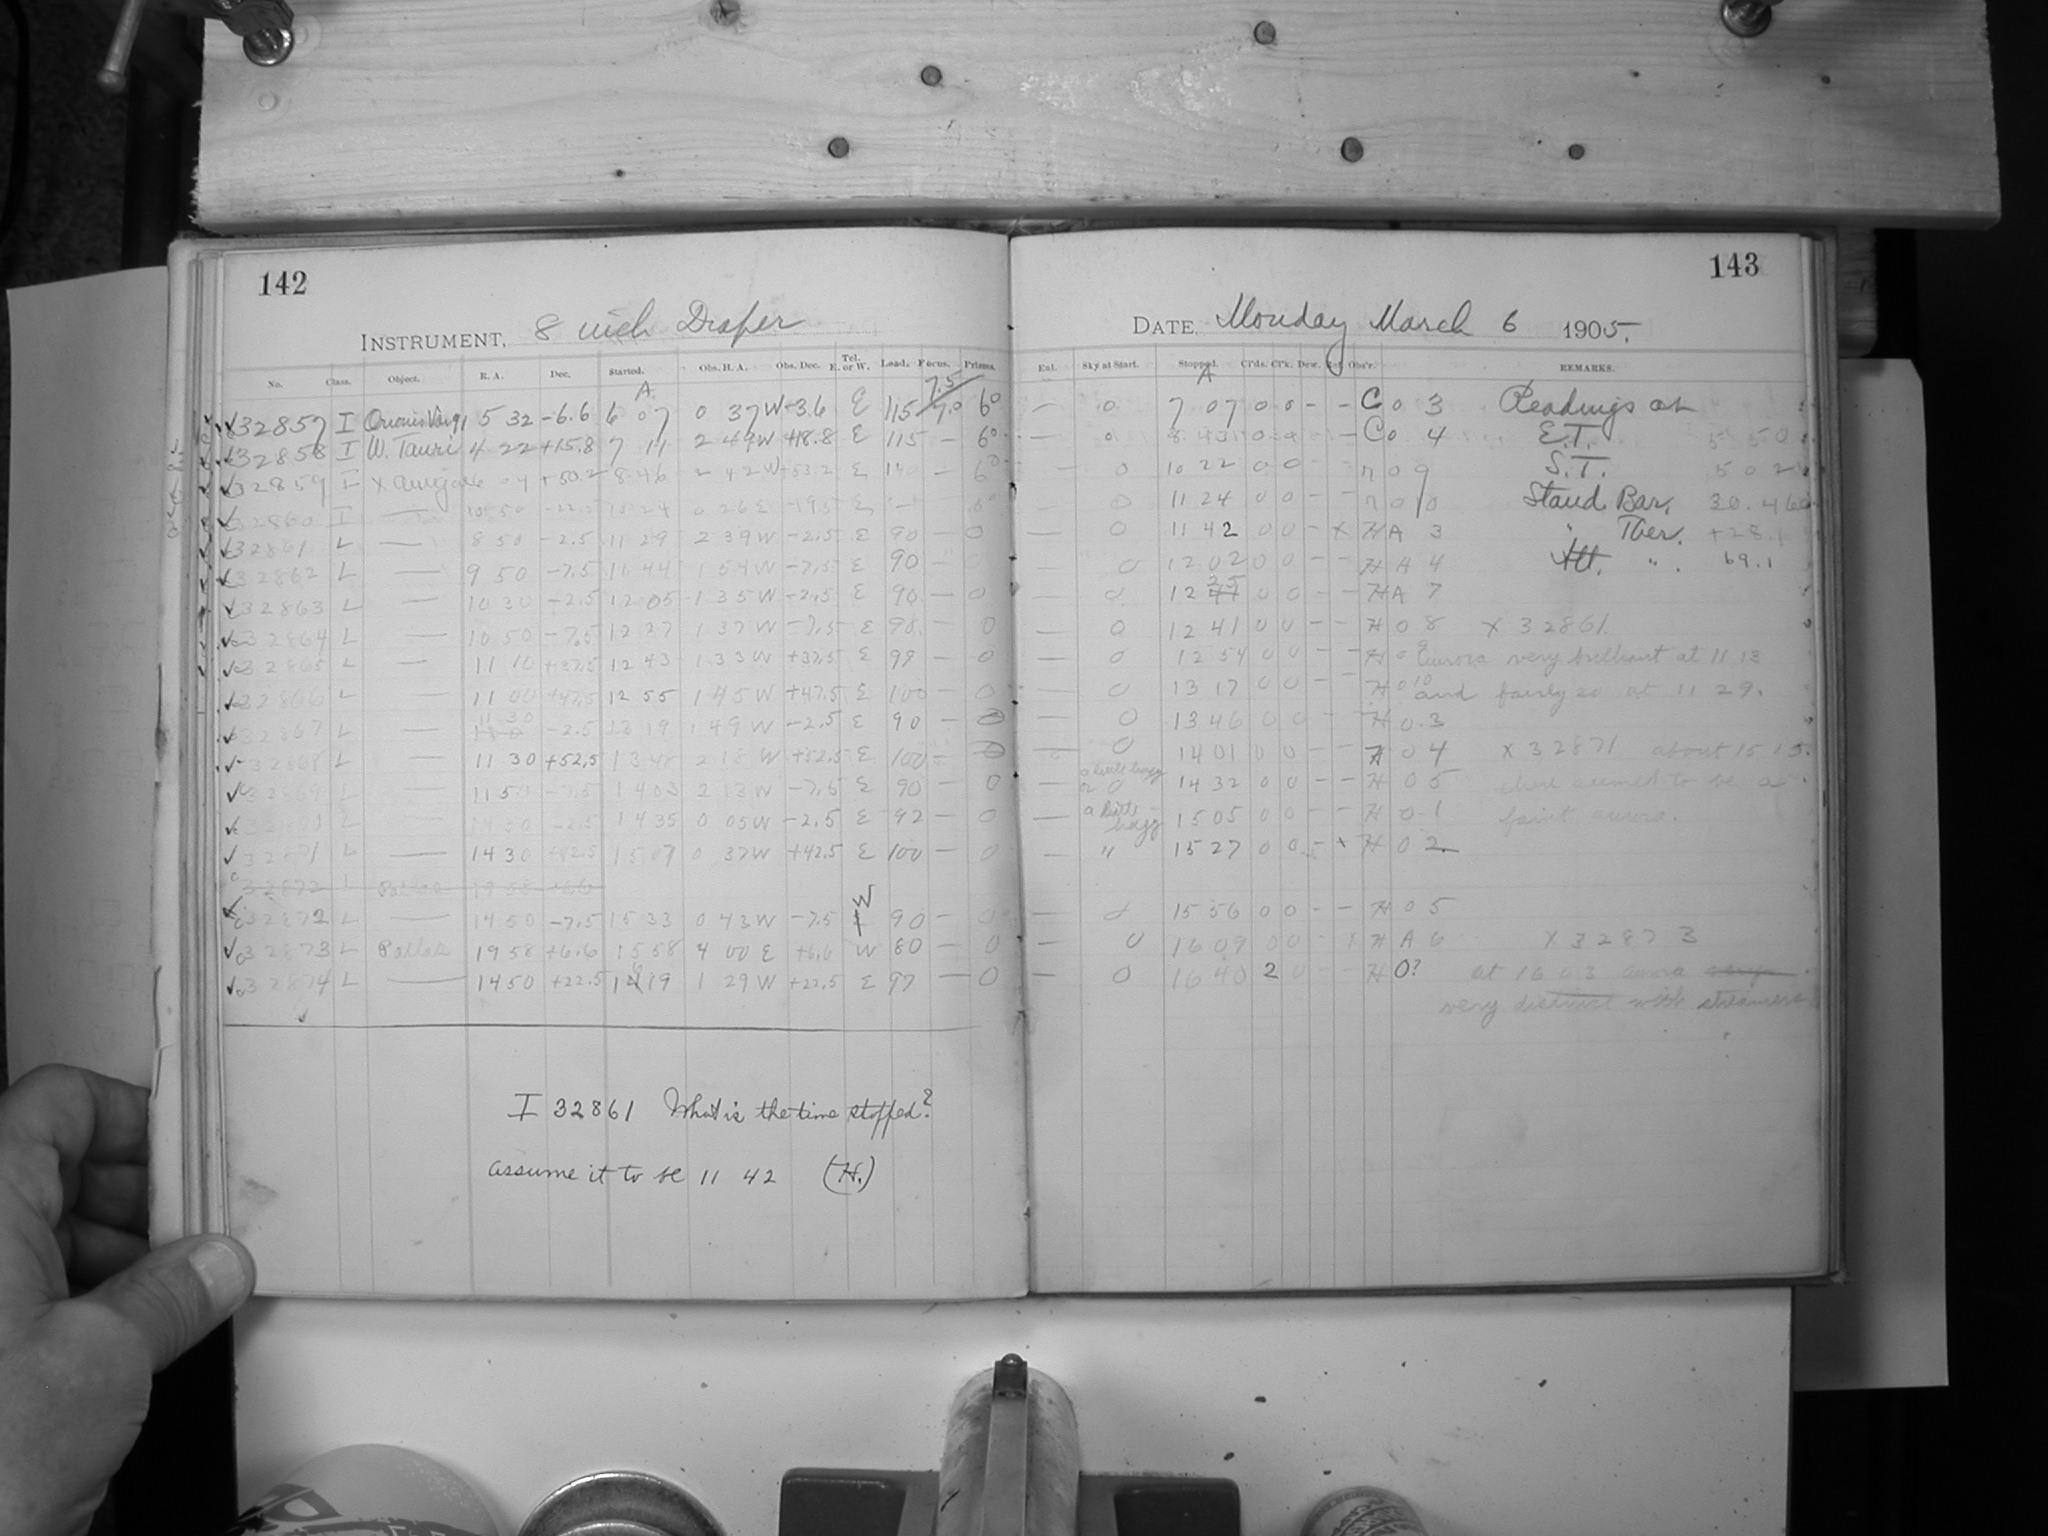 142
INSTRUMENT, 8 inch Draper
No. Class. Object. R. A. Dec. Started. Obs. H. A. Obs. Dec. Tel. E. or W. Lead. Focus. Prisms.
32857 I Orionis 5 32 -6.6 6 07 0 37W -3.6 E 115 7.0 6°
32858 I W. Tauri 4 22 +15.8 7 11 2 49W +18.8 E 115 - 6°
32859 I + 50.2 8 46 2 42W +53.2 E - 6°
32860 I — 10 50 0 26E -19.5 E
32861 L — 8 50 -2.5 11 29 2 39W -2.5 E 90 - 0
32862 L — 9 50 -7.5 11 44 1 54W -7.5 E 90 -
32863 L — 10 30 -2.5 12 05 1 35W -2.5 E 90 - 0
32864 L — 10 50 -7.5 12 27 1 37W -7.5 E 90 - 0
32865 L — 11 10 +37.5 12 43 1 33W +37.5 E 99 - 0
32866 L — 11 00 +47.5 12 55 1 45W +47.5 E 100 - 0
32867 L — 11 30 -2.5 13 19 1 49W -2.5 E 90 - 0
32868 L — 11 30 +52.5 13 48 2 18 W +52.5 E 100 - 0
32869 L — 11 50 -7.5 14 03 2 13W -7.5 E 90 - 0
L — 14 30 -2.5 14 35 0 05W -2.5 E 92 - 0
32871 L — 14 30 +42.5 15 07 0 37W +42.5 E 100 - 0
32872 L Pallas 19 58 +6.6
32872 L — 14 50 -7.5 15 33 0 43W -7.5 W 90 - 0
32873 L Pallas 19 58 +6.6 15 58 4 00 E +6.6 W 80 - 0
32874 L — 14 50 +22.5 16 19 1 29W +22.5 E 97 - 0
I 32861 What is the time stopped?
assume it to be 11 42 (H.)
143
DATE, Monday March 6 1905.
Ext. Sky at Start. Stopped. Cr'ds. Cr'k. Dew. Ref. Obs'r. REMARKS.
— 0 7 07 0 0 - - C 0 3 Readings at
— 0 8 43 0 0 - C 0 4 E.T. 5 50
— 0 10 22 0 0 - - 0 9 S.T. 5 02
— 0 11 24 0 0 - - 0 10 Stand. Bar. 30.460
— 0 11 42 0 0 - X H A 3 " Ther. +28.1
— 0 12 02 0 0 - - H A 4 Att. " 69.1
— 0 12 25 0 0 - - H A 7
— 0 12 41 0 0 - - H 0 8 X 32861
— 0 12 54 0 0 - - H 0 9 aurora very brilliant at 11 13
— 0 13 17 0 0 - - H 0 10 and fairly so at 11 29.
— 0 13 46 0 0 - - H 0 3
— 0 14 01 0 0 - - H 0 4 X 32871 about 15 15
— a little hazy 0 14 32 0 0 - - H 0 5 there seemed to be a
— a little hazy 15 05 0 0 - - H 0 1 faint aurora.
— " 15 27 0 0 - X H 0 2
— 0 15 56 0 0 - - H 0 5
0 16 09 0 0 - X H A 6 X 32873
— 0 16 40 2 0 - - H 0? at 16 03 aurora
very distinct with streamers